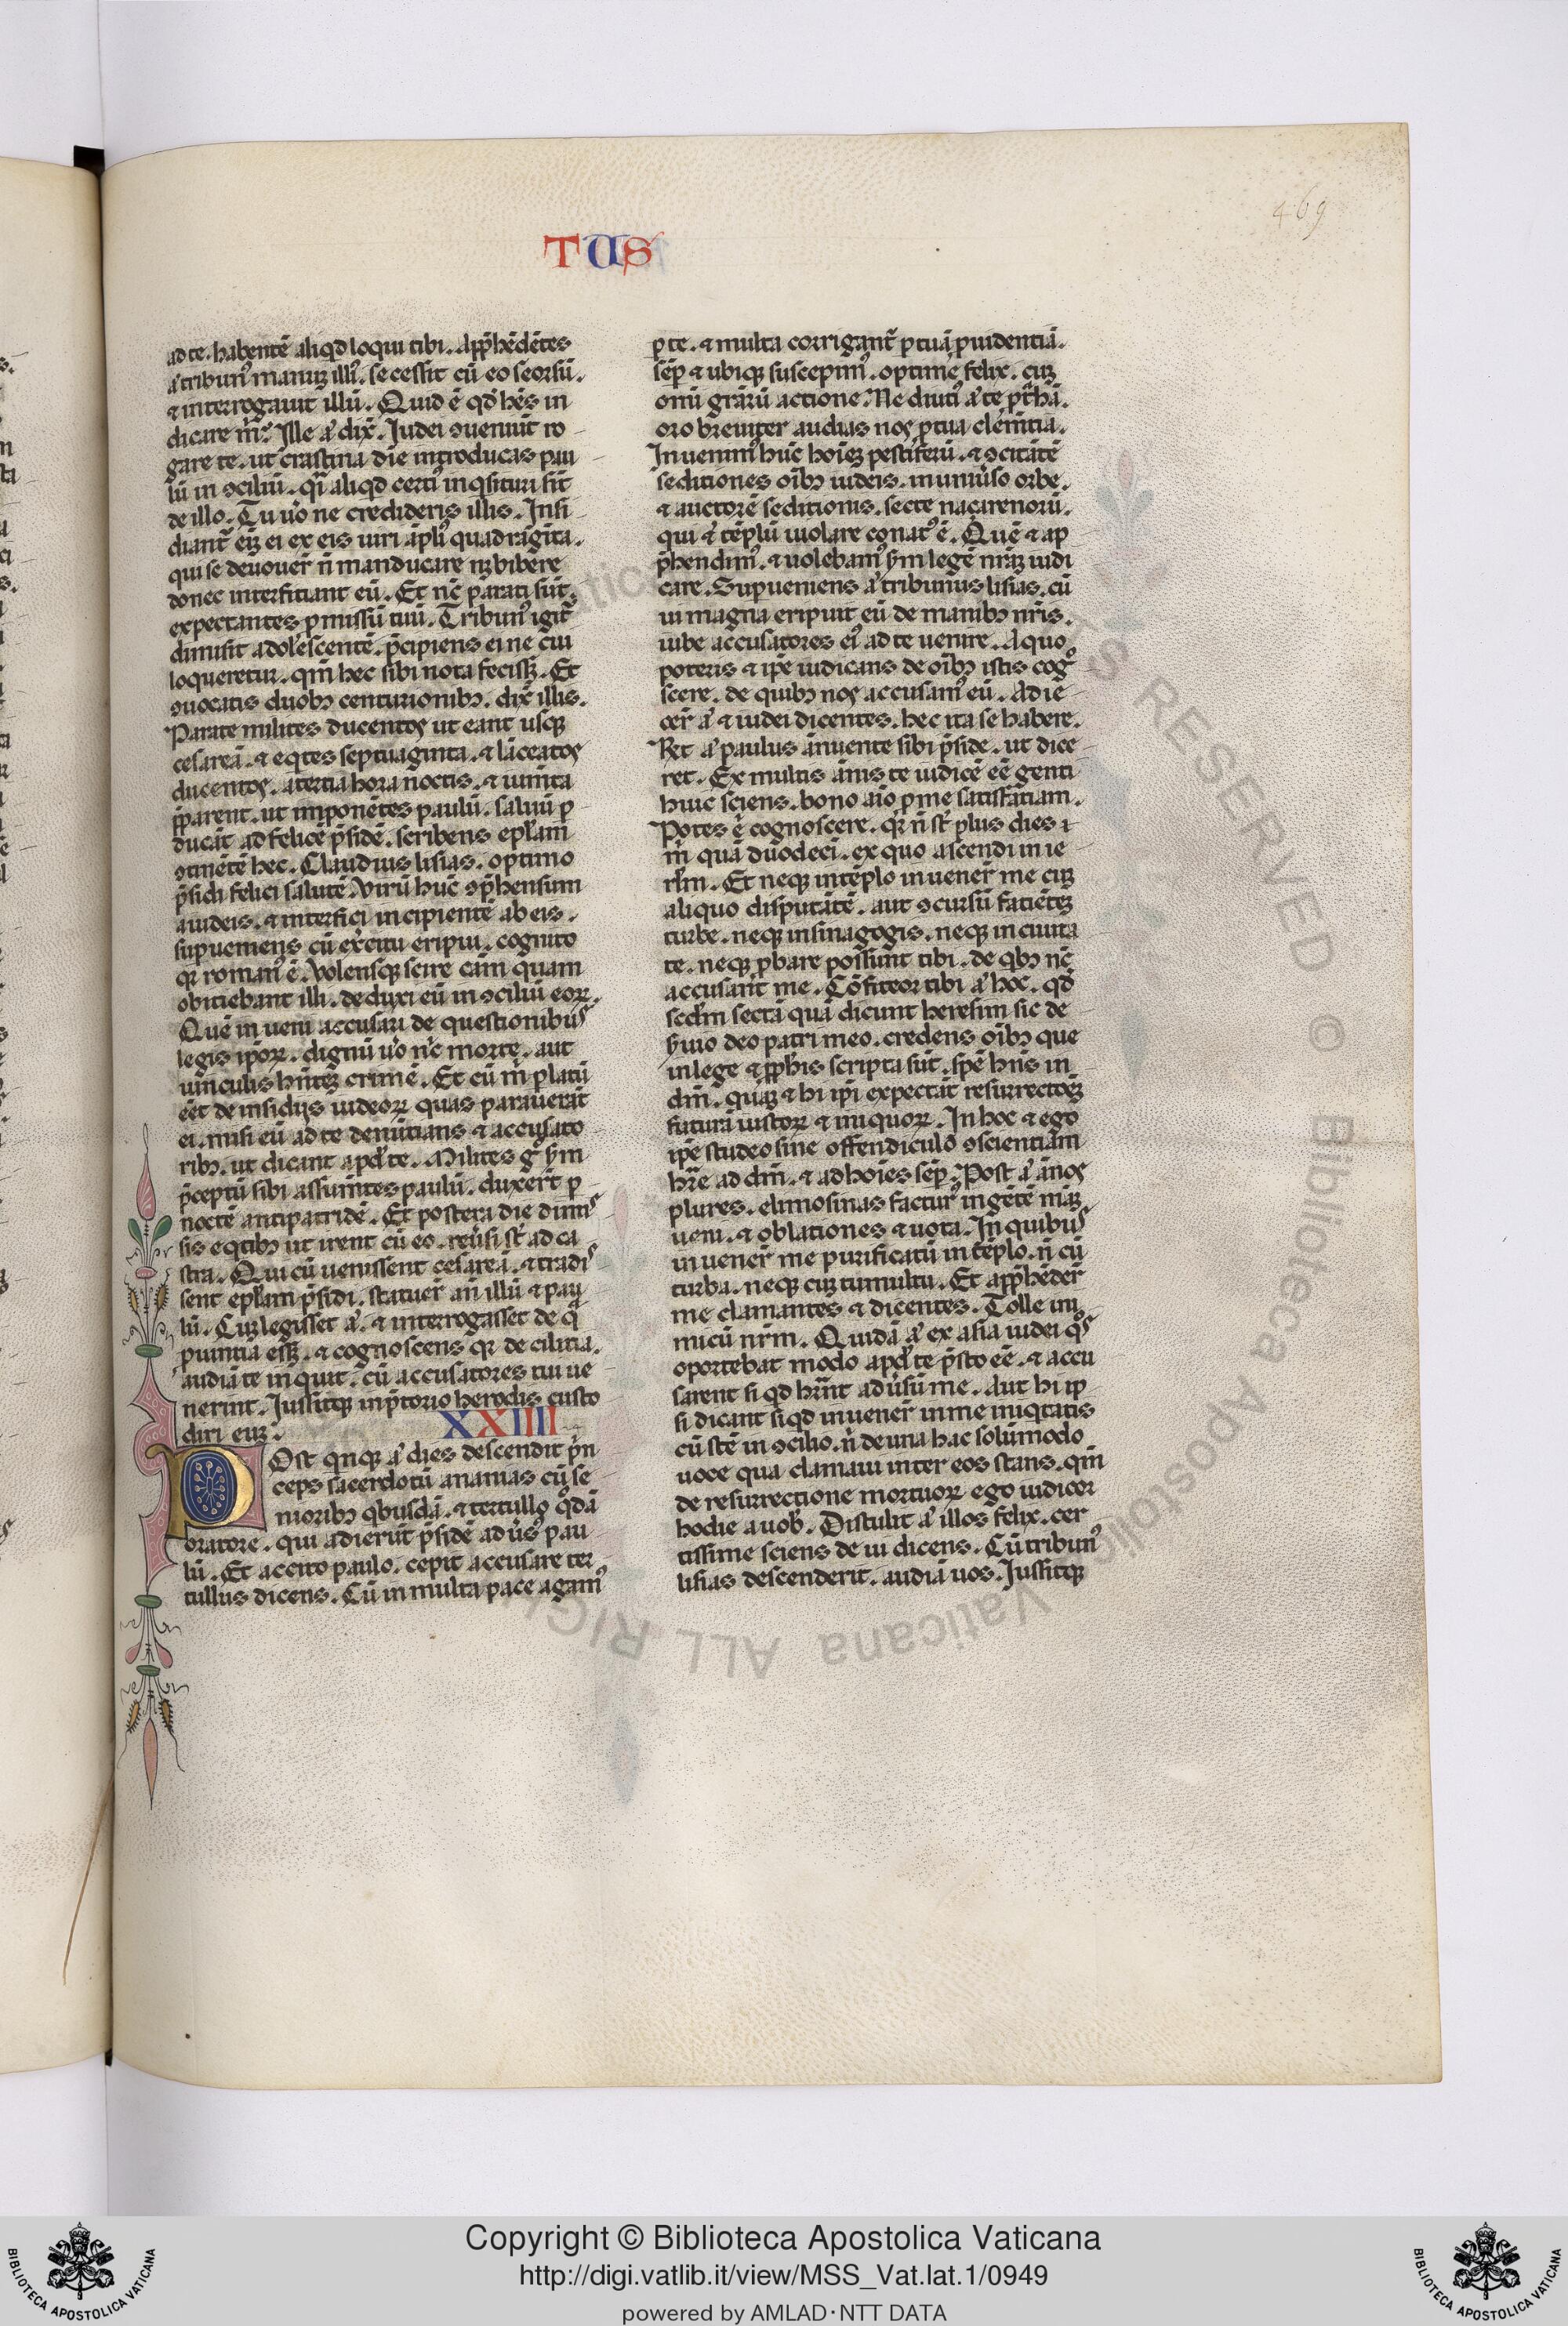 469
TUS
ad te. habentē aliqd loqui tibi. Apphēdētes
a' tribun' manuz illi'. secessit cū eo seorsū.
et interrogauit illū. Quid ē qd hēs in
dicare m̄. Ille a' dix̄. Iudei ɔuenīut ro
gare te. ut crastina die introducas pau
lū in ɔciliū. q̄i aliqd certi' inq̄situri sīt
de illo. Tu u̓o ne credideris illis. Insi
diant̄ eīz ei ex eis uiri āpli' quadrāgīta.
qui se deuouer̄ n̄ manducare nꝫ bibere
donec interfitiant eū. Et nc̄ parati sūt.
expectantes pmissū tuū. Tribun' igit̄
dimisit adolescentē. p̄cipiens ei ne cui
loqueretur. qm̄ hec sibi nota fecissꝫ. Et
ɔuocatis duobꝫ centurionibꝫ. dix̄ illis.
Parate milites ducentos ut eant usqꝫ
cesareā. et eq̄tes septuaginta. et lāceatos
ducentos. a tertia hora noctis. et iumēta
p̄parent. ut imponētes paulū. saluū p
ducāt ad felicē p̄sidē. scribens ep̄lam
ɔtinētē hec. Claudius lisias. optimo
p̄sidi felici salutē. Virū hūc ɔp̄hensum
a iudeis. et interfici incipientē ab eis.
supueniens cū ex̓citu eripui. cognito
qꝛ roman' ē. Volensqꝫ scire cām quam
obitiebant illi. deduxi eū in ɔciliū eoꝝ.
Quē inueni accusari de questionibus
legis ip̄oꝝ. dignū u̓o nc̄ morte. aut
uinculis hn̄tēz crimē. Et cū m̄ platū
eēt de insidijs iudeoꝝ quas parauerāt
ei. misi eū ad te denūtians et accusato
ribꝫ. ut dicant apd' te. Milites g̊ ẜm
p̄ceptū sibi assumētes paulū. duxer̄t p
noctē antipatridē. Et postera die dimi
sis eq̄tibꝫ ut irent cū eo. reu̓si st̄ ad ca
stra. Qui cū uenissent cesareā. et tradi
sent ep̄lam p̄sidi. statuer̄ an̄ illū et pau
lū. Cuz legisset a'. et interrogasset de q̄
puintia essꝫ. et cognoscens qꝛ de cilitia.
audiā te inquit. cū accusatores tui ue
nerint. Iussitqꝫ in p̄torio herodis custo
diri euꝫ.
XXIIII
Post qnqꝫ a' dies descendit p̄n
ceps sacerdotū ananias cū se
nioribꝫ qbusdā. et tertullo q̊dā
oratore. qui adierūt p̄sidē adu̓s' pau
lū. Et accito paulo. cepit accusare ter
tullus dicens. Cū in multa pace agam'
p te. et multa corrigant̄ p tuā puidentiā.
sēp et ubiqꝫ suscepim'. optime felix. cuꝫ
oni̅ grārū actione. Ne diuti' a' te pt̄hā.
oro breuiter audias nos p tua clemētia.
Inuenim' hūc hoiēz pestiferū. et ɔcitātē
seditiones oībꝫ iudeis. in uniu̓so orbe.
et auctorē seditionis. secte naçarenorū.
qui et̄ tēplū uiolare conat' ē. Quē et ap
p̄hendim'. et uolebam' ẜm legē nrāꝫ iudi
care. Supueniens a' tribunus lisias. cū
ui magna eripuit eū de manibꝫ nr̄is.
iube accusatores ei' ad te uenire. A quo
poteris et ip̄e iudicans de oībꝫ istis cog
scere. de quibꝫ nos accusam' eū. Adie
cer̄ a' et iudei dicentes. hec ita se habere.
Rt̄ a' paulus ānuente sibi p̄side. ut dice
ret. Ex multis ānis te iudicē eē genti
huic sciens. bono aīo p me satisfatiam.
Potes e̅ cognoscere. qꝛ n̄ st̄ plus dies
m̄ quā duodeci. ex quo ascendi in ie
rlm̄. Et neqꝫ in tēplo inuener̄ me cuꝫ
aliquo disputātē. aut ɔcursū fatiētēꝫ
turbe. neqꝫ in sinagogis. neqꝫ in ciuita
te. neqꝫ pbare possunt tibi. de qbꝫ nc̄
accusant me. Cōfiteor tibi a' hoc. qd̄
scdm̄ sectā quā dicunt heresim sic de
ẜuio deo patri meo. credens oībꝫ que
in lege et pphis scripta sūt. spē hn̄s in
dm̄. quāꝫ et hi ip̄i expectāt resurrectoēꝫ
futurā iustoꝝ et iniquoꝝ. In hoc et ego
ip̄e studeo sine offendiculo ɔscientiam
hr̄e ad dm̄. et ad hoīes sēp. Post a' ānos
plures. elimosinas factur' in gētē meāꝫ
ueni. et oblationes et uota. In quibus
inuener̄ me purificatū in tēplo. n̄ cū
turba. neqꝫ cuꝫ tumultu. Et apphēder̄
me clamantes et dicentes. Tolle ini
micū nrm̄. Quidā a' ex asia iudei q̊s
oportebat modo apd' te p̄sto eē. et accu
sarent si qd hr̄ent adu̓sū me. Aut hi ip
si dicant si qd inuener̄ in me iniqtatis
cū stē in ɔcilio. n̄ de una hac solūmodo
uoce qua clamaui inter eos stans. qm̄
de resurrectione mortuoꝝ ego iudicor
hodie a uob'. Distulit a' illos felix. cer
tissime sciens de ui dicens. Cū tribun'
lisias descenderit. audiā uos. Iussitqꝫ
Copyright © Biblioteca Apostolica Vaticana
http://digi.vatlib.it/view/MSS_Vat.lat.1/0949
powered by AMLAD·NTT DATA
BIBLIOTECA APOSTOLICA VATICANA
BIBLIOTECA APOSTOLICA VATICANA